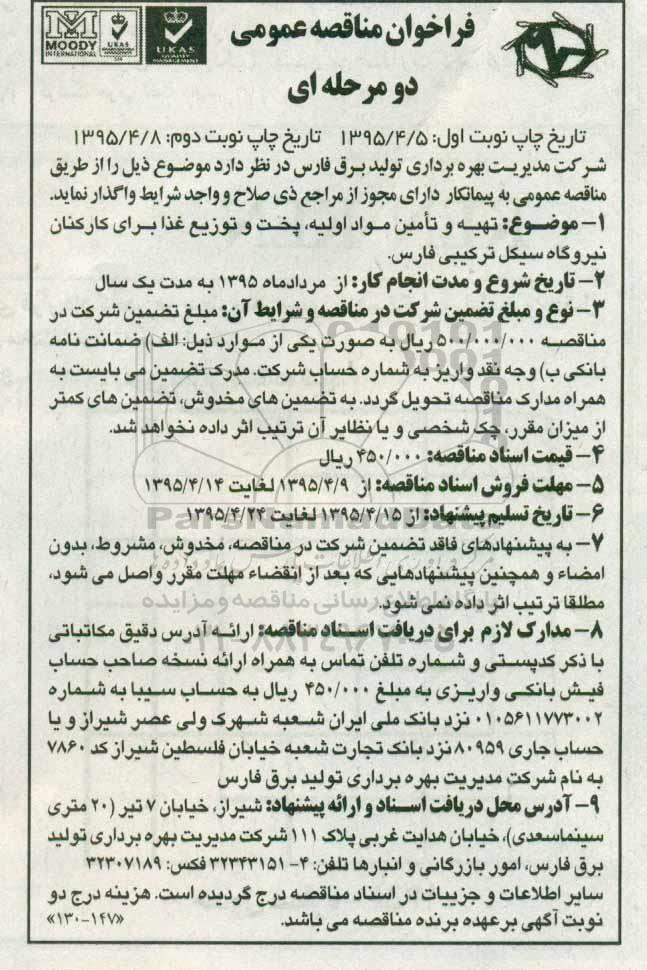 MOODY
INTERNATIONAL
UKAS
UKAS
QUALITY
MANAGEMENT
فراخوان مناقصه عمومی
دو مرحله ای
تاریخ چاپ نوبت اول: ۱۳۹۵/۴/۵ تاریخ چاپ نوبت دوم: ۱۳۹۵/۴/۸
شرکت مدیریت بهره برداری تولید برق فارس در نظر دارد موضوع ذیل را از طریق
مناقصه عمومی به پیمانکار دارای مجوز از مراجع ذی صلاح و واجد شرایط واگذار نماید.
۱- موضوع: تهیه و تأمین مواد اولیه، پخت و توزیع غذا برای کارکنان
نیروگاه سیکل ترکیبی فارس.
۲- تاریخ شروع و مدت انجام کار: از مردادماه ۱۳۹۵ به مدت یک سال
۳- نوع و مبلغ تضمین شرکت در مناقصه و شرایط آن: مبلغ تضمین شرکت در
مناقصه ۵۰۰/۰۰۰/۰۰۰ ریال به صورت یکی از موارد ذیل: الف) ضمانت نامه
بانکی ب) وجه نقد واریز به شماره حساب شرکت. مدرک تضمین می بایست به
همراه مدارک مناقصه تحویل گردد. به تضمین های مخدوش، تضمین های کمتر
از میزان مقرر، چک شخصی و یا نظایر آن ترتیب اثر داده نخواهد شد.
۴- قیمت اسناد مناقصه: ۴۵۰/۰۰۰ ریال
۵- مهلت فروش اسناد مناقصه: از ۱۳۹۵/۴/۹ لغایت ۱۳۹۵/۴/۱۴
۶- تاریخ تسلیم پیشنهاد: از ۱۳۹۵/۴/۱۵ لغایت ۱۳۹۵/۴/۲۴
۷- به پیشنهادهای فاقد تضمین شرکت در مناقصه، مخدوش، مشروط، بدون
امضاء و همچنین پیشنهادهایی که بعد از انقضاء مهلت مقرر واصل می شود،
مطلقا ترتیب اثر داده نمی شود.
۸- مدارک لازم برای دریافت اسناد مناقصه: ارائه آدرس دقیق مکاتباتی
با ذکر کدپستی و شماره تلفن تماس به همراه ارائه نسخه صاحب حساب
فیش بانکی واریزی به مبلغ ۴۵۰/۰۰۰ ریال به حساب سیبا به شماره
۰۱۰۵۶۱۱۷۷۳۰۰۲ نزد بانک ملی ایران شعبه شهرک ولی عصر شیراز و یا
حساب جاری ۸۰۹۵۹ نزد بانک تجارت شعبه خیابان فلسطین شیراز کد ۷۸۶۰
به نام شرکت مدیریت بهره برداری تولید برق فارس
۹- آدرس محل دریافت اسناد و ارائه پیشنهاد: شیراز، خیابان ۷ تیر (۲۰ متری
سینماسعدی)، خیابان هدایت غربی پلاک ۱۱۱ شرکت مدیریت بهره برداری تولید
برق فارس، امور بازرگانی و انبارها تلفن: ۴- ۳۲۳۴۳۱۵۱ فکس: ۳۲۳۰۷۱۸۹
سایر اطلاعات و جزییات در اسناد مناقصه درج گردیده است. هزینه درج دو
نوبت آگهی بر عهده برنده مناقصه می باشد. «۱۳۰-۱۴۷»